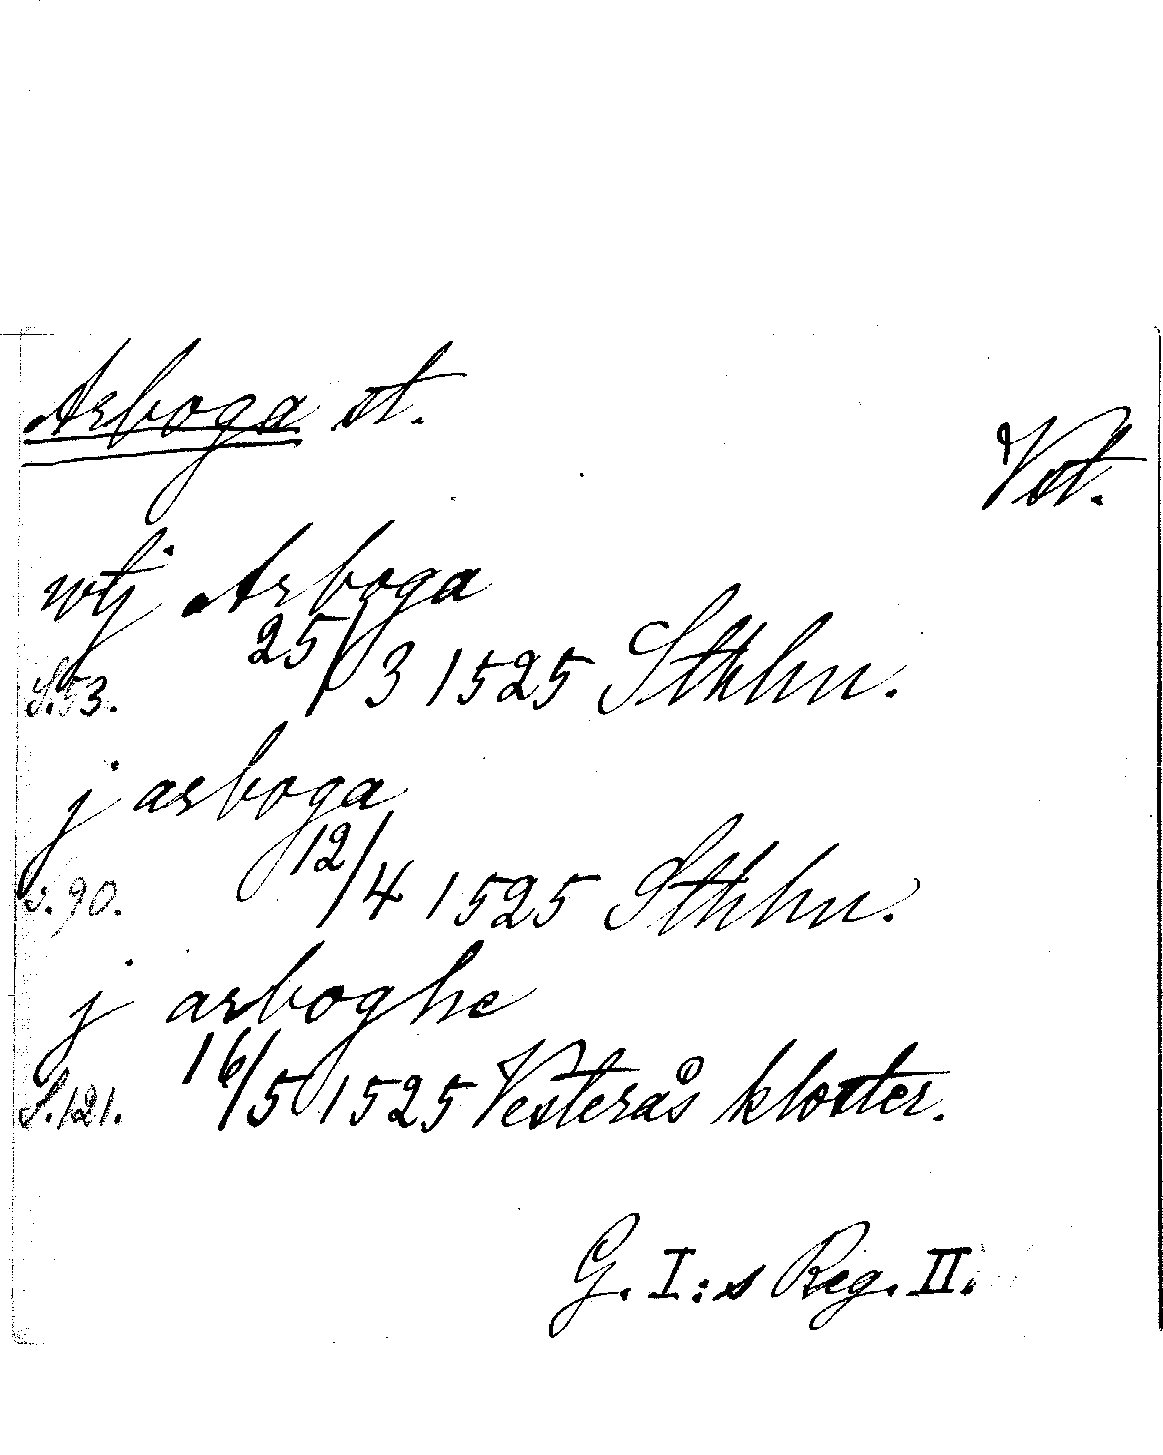 Arboga st.
Vst.
wtj Arboga
S.53. 25/3 1525 Sthhn.
j arboga
s.90. 12/4 1525 Sthhn.
j arboghe
S.121. 16/5 1525 Vesterås kloster.
G. I:s Reg. II.